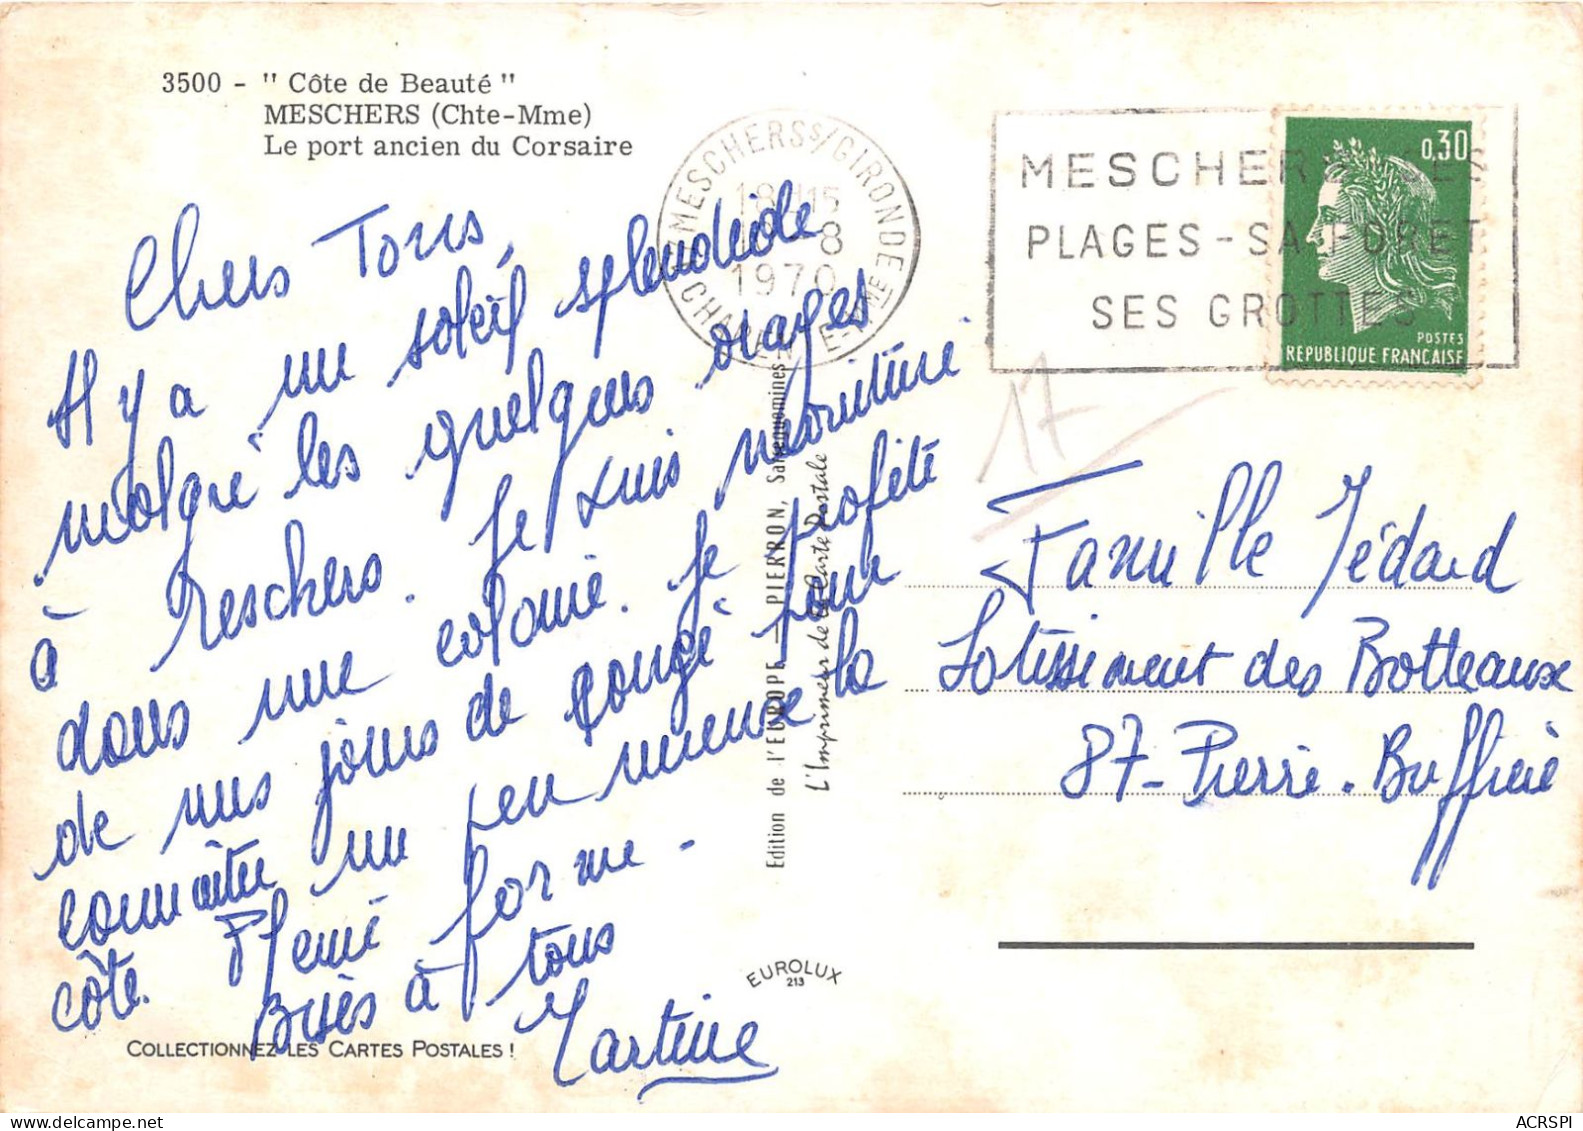 3500 - " Côte de Beauté "
MESCHERS (Chte-Mme)
Le port ancien du Corsaire
Chers Tous,
Il y a un soleil splendide
malgré les quelques orages
à Meschers. Je suis monitrice
dans une colonie. Je profite
de mes jours de congé pour
connaître un peu mieux la
côte. Pleine forme -
Bises à tous
Martine
COLLECTIONNEZ LES CARTES POSTALES !
MESCHERS S/GIRONDE
18H15
8
1970
CHARENTE-MME
MESCHERS SES
PLAGES - SA FORET
SES GROTTES
0,30
POSTES
RÉPUBLIQUE FRANÇAISE
17
Famille Médard
Lotissement des Botteaux
87 - Pierre-Buffière
Edition de l'EUROPE — PIERRON, Sarreguemines
L'Imprimeur de la Carte Postale
EUROLUX
213
ACRSPI